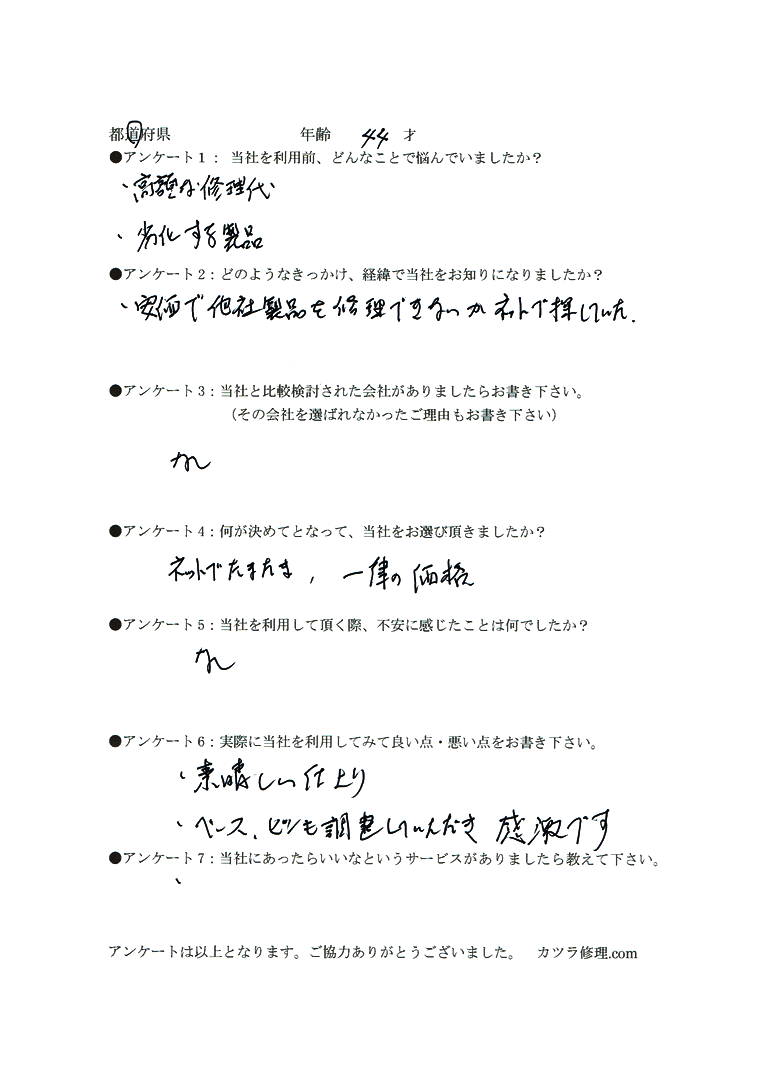 都道府県 年齢 44 才
●アンケート1： 当社を利用前、どんなことで悩んでいましたか？
・高額な修理代
・劣化する製品
●アンケート2：どのようなきっかけ、経緯で当社をお知りになりましたか？
・安価で他社製品を修理できないかネットで探していた.
●アンケート3：当社と比較検討された会社がありましたらお書き下さい。
（その会社を選ばれなかったご理由もお書き下さい）
なし
●アンケート4：何が決めてとなって、当社をお選び頂きましたか？
ネットでたまたま, 一律の価格
●アンケート5：当社を利用して頂く際、不安に感じたことは何でしたか？
なし
●アンケート6：実際に当社を利用してみて良い点・悪い点をお書き下さい。
・素晴しい仕上り
・ベース、ピンも調整していんだき 感激です
●アンケート7：当社にあったらいいなというサービスがありましたら教えて下さい。
、
アンケートは以上となります。ご協力ありがとうございました。 カツラ修理.com